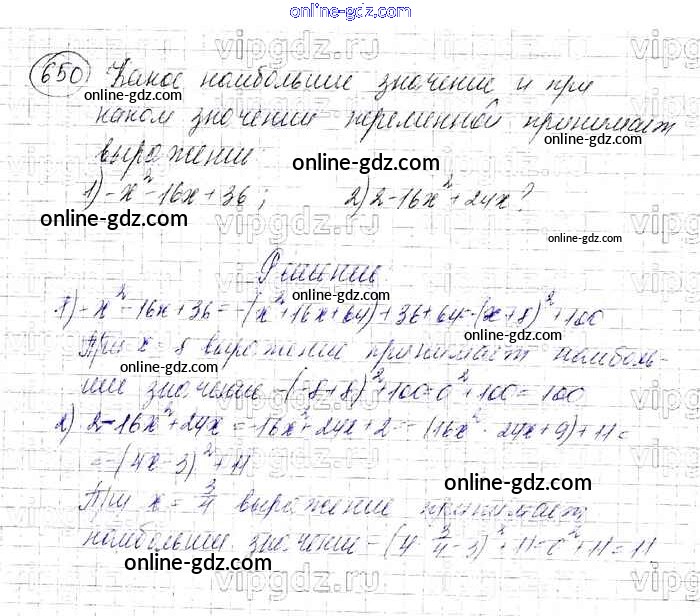 650 Какое наибольшее значение и при
каком значении переменной принимает
выражение
1) -x² - 16x + 36; 2) 2 - 16x² + 24x?
Решение
1) -x² - 16x + 36 = -(x² + 16x + 64) + 36 + 64 = -(x + 8)² + 100
При x = 8 выражение принимает наиболь-
шее значение -(-8 + 8)² + 100 = 0² + 100 = 100
2) 2 - 16x² + 24x = -16x² + 24x + 2 = -(16x² - 24x + 9) + 11 =
= -(4x - 3)² + 11
При x = 3/4 выражение принимает
наибольшее значение -(4 · 3/4 - 3)² + 11 = 0² + 11 = 11
online-gdz.com
vipgdz.ru